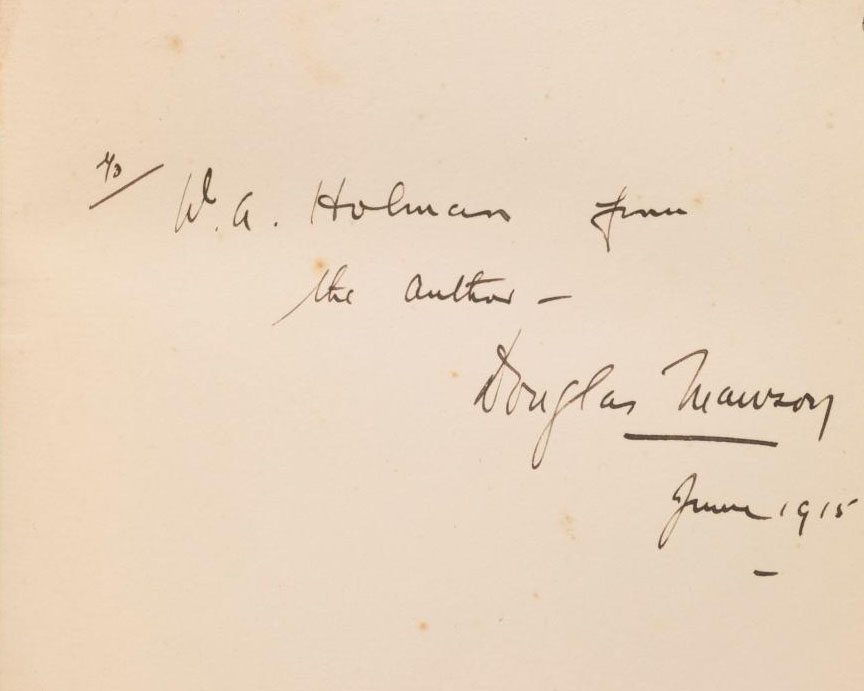 To/ W. A. Holman from
the author –
Douglas Mawson
June 1915